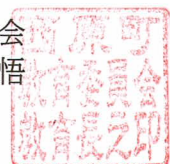 会
悟
西原町
教育委員会
教育長之印